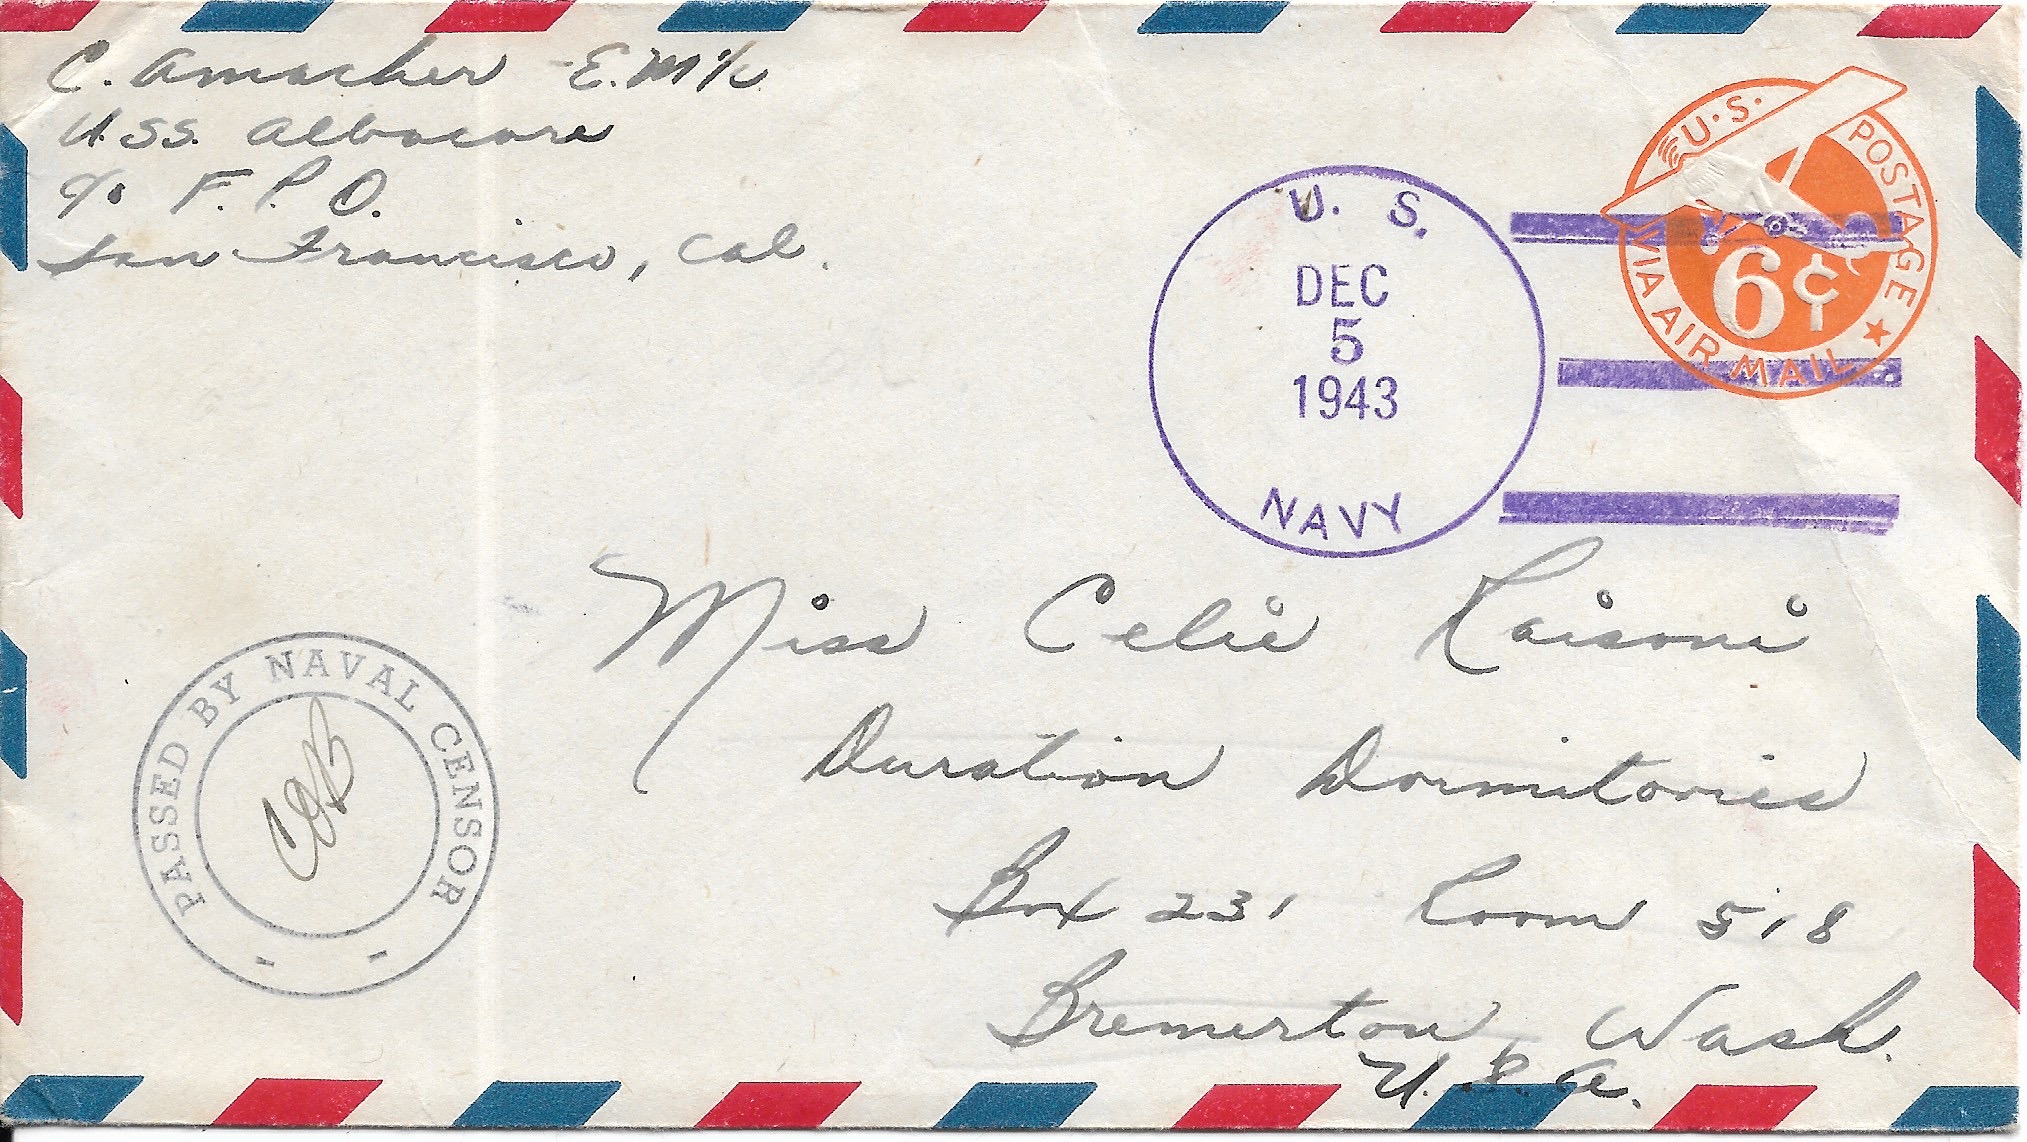 C. Amacher E.M1/c
U.SS. Albacore
c/o F.P.O.
San Francisco, Cal.
U. S.
DEC
5
1943
NAVY
U.S. POSTAGE
6¢
VIA AIR MAIL
Miss Celie Raisoni
Duration Dormitories
Box 231 Room 518
Bremerton, Wash.
U.S.A.
PASSED BY NAVAL CENSOR